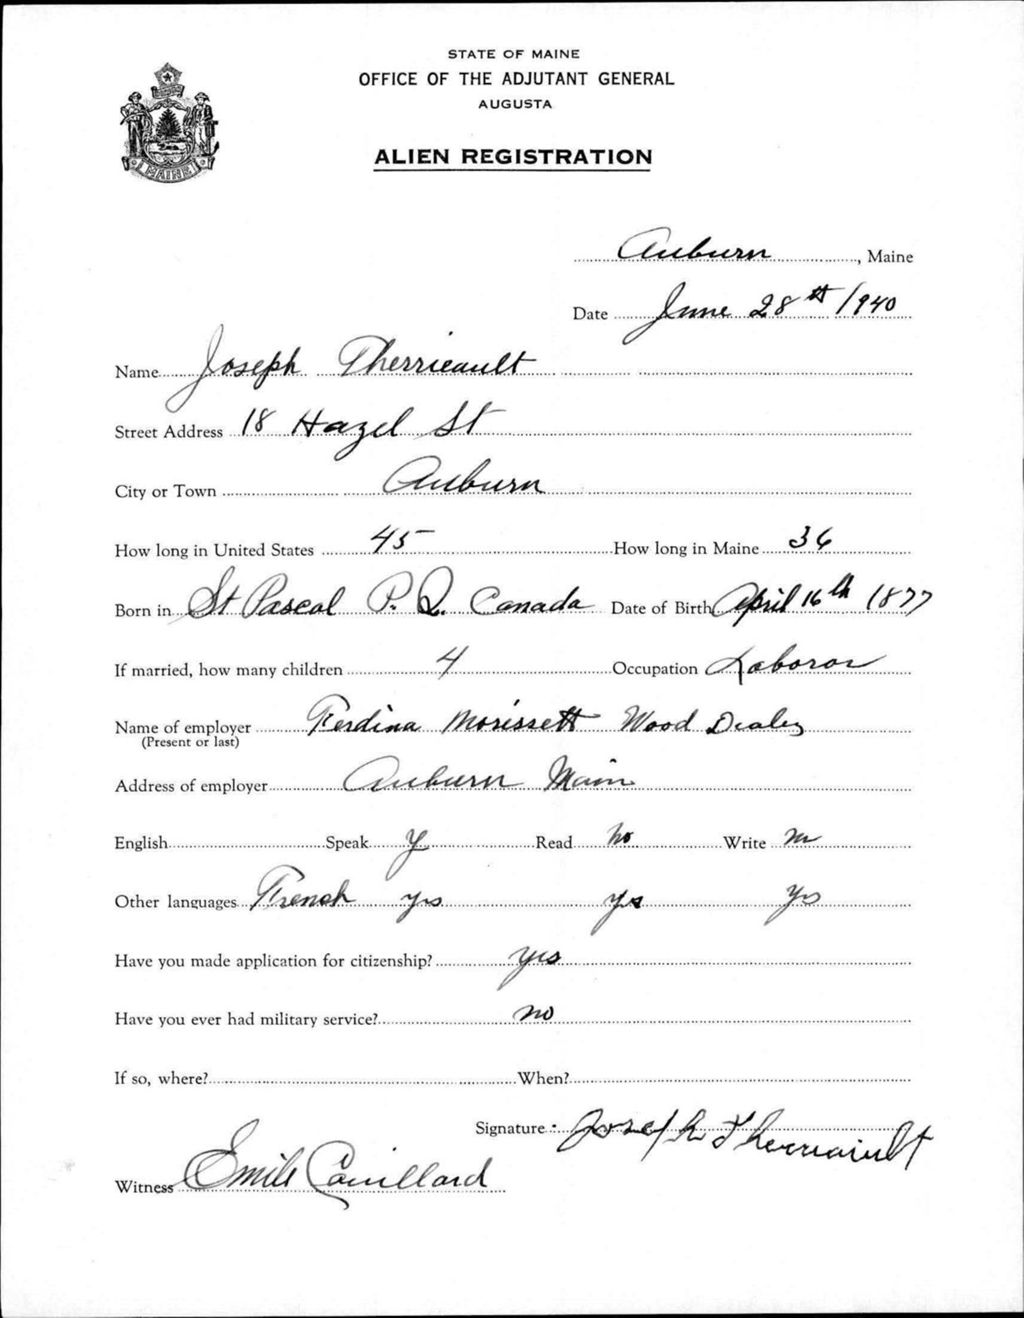 STATE OF MAINE
OFFICE OF THE ADJUTANT GENERAL
AUGUSTA
ALIEN REGISTRATION
MAINE
Auburn, Maine
Date June 28th 1940
Name Joseph Therrieault
Street Address 18 Hazel St
City or Town Auburn
How long in United States 45 How long in Maine 36
Born in St Pascal P. Q. Canada Date of Birth April 16th 1877
If married, how many children 4 Occupation Laboror
Name of employer Ferdina Morissett Wood Dealer
(Present or last)
Address of employer Auburn Main
English Speak y Read no Write no
Other languages French yes yes yes
Have you made application for citizenship? yes
Have you ever had military service? no
If so, where? When?
Signature Joseph Therriault
Witness Emile